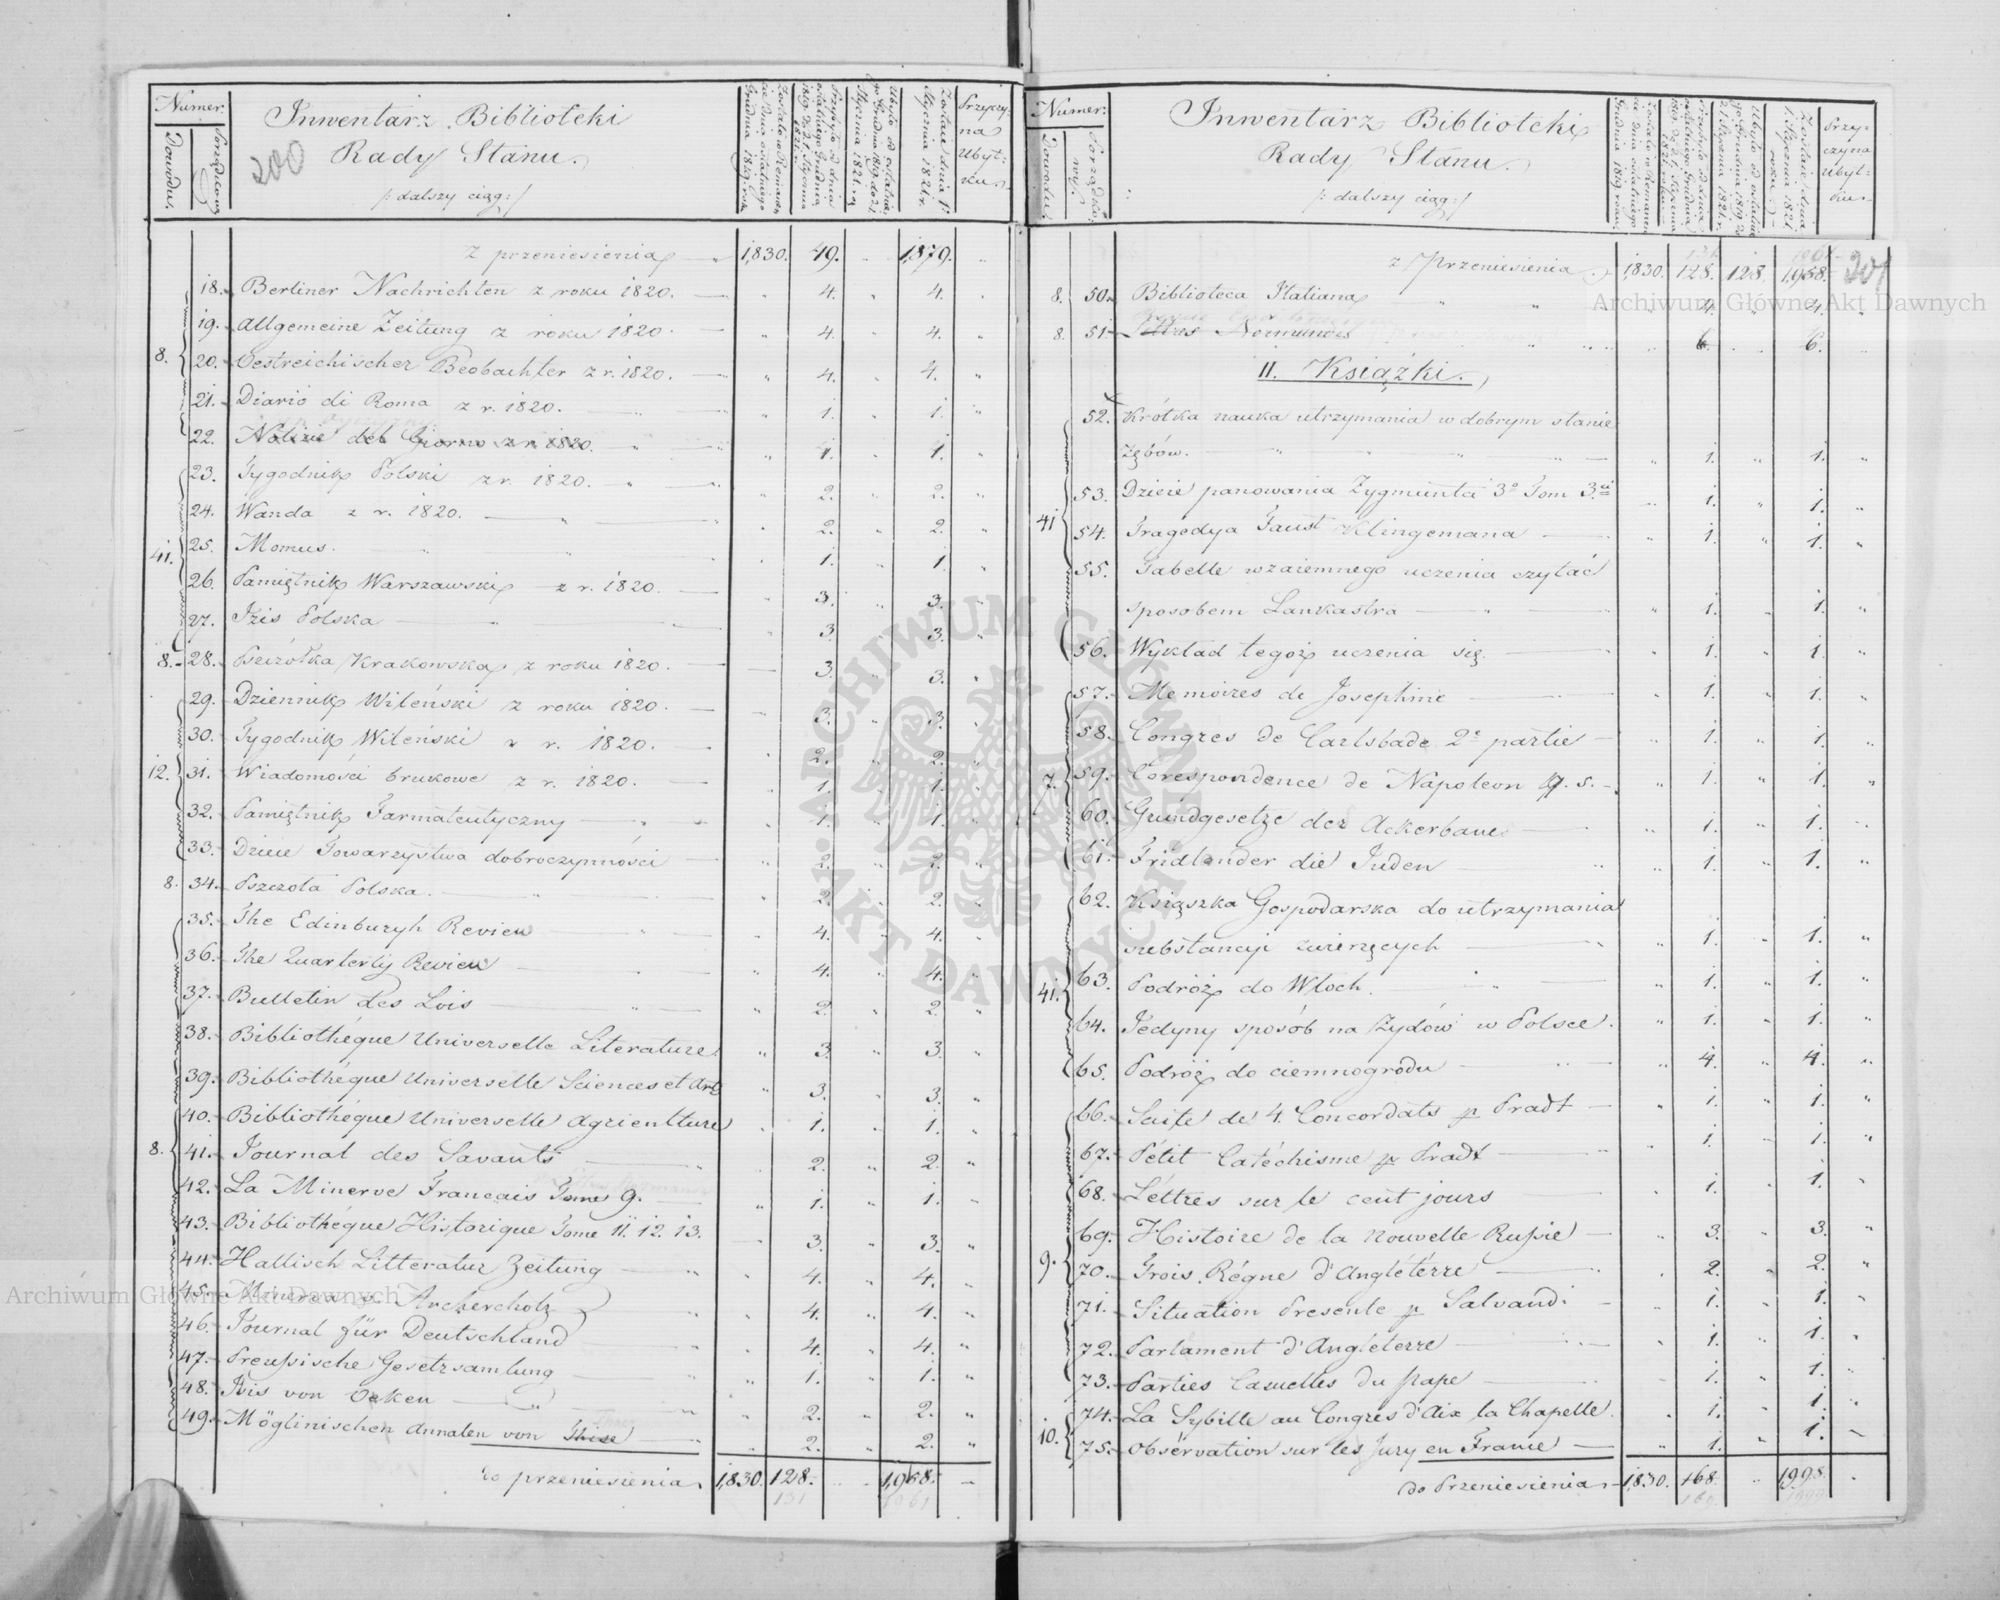 Numer.
Dowodu.
Porządkowy
Inwentarz Biblioteki
200
Rady Stanu.
/: dalszy ciąg :/
Przyczyna Ubytku
z przeniesienia 1,830. 49. 1,879.
18. Berliner Nachrichten z roku 1820. 4. 4.
19. Allgemeine Zeitung z roku 1820. 4. 4.
8. 20. Oestreichischer Beobachter z r. 1820. 4. 4.
21. Diario di Roma z r. 1820. 1. 1.
22. Notizie del Giorno z r. 1820. 1. 1.
23. Tygodnik Polski z r. 1820. 2. 2.
24. Wanda z r. 1820. 2. 2.
41. 25. Momus. 1. 1.
26. Pamiętnik Warszawski z r. 1820. 3. 3.
27. Izis Polska 3. 3.
8. 28. Pszczółka Krakowska z roku 1820. 3. 3.
29. Dziennik Wileński z roku 1820. 3. 3.
30. Tygodnik Wileński z r. 1820. 2. 2.
12. 31. Wiadomości brukowe z r. 1820. 1. 1.
32. Pamiętnik Farmateutyczny 1. 1.
33. Dzieie Towarzystwa dobroczynności 2. 2.
8. 34. Pszczoła Polska. 2. 2.
35. The Edinburgh Review 4. 4.
36. The Quarterly Review 4. 4.
37. Bulletin des Lois 2. 2.
38. Bibliothéque Universelle Literature 3. 3.
39. Bibliothéque Universelle Sciences et Arts 3. 3.
40. Bibliothéque Universelle Agriculture 1. 1.
8. 41. Journal des Savants 2. 2.
42. La Minerve Francais Tome 9. 1. 1.
43. Bibliothéque Historique Tome 11. 12. 13. 3. 3.
44. Hallisch Litteratur Zeitung 4. 4.
45. Minerva v. Archercholz 4. 4.
46. Journal für Deutschland 4. 4.
47. Preußische Gesetzsamlung 1. 1.
48. Isis von Oeken 2. 2.
49. Möglinischen Annalen von 2. 2.
do przeniesienia 1,830. 128. 1,958.
Numer.
Dowodu.
Porządkowy.
Inwentarz Biblioteki
Rady Stanu.
/: dalszy ciąg :/
Przyczyna ubytku
z Przeniesienia 1,830. 128. 128 1,958. 201
8. 50. Biblioteca Italiana 4. 4.
8. 51. Lettres Normandes 6. 6.
II. Książki.
52. Krótka nauka utrzymania w dobrym stanie
zębów. 1. 1.
53. Dzieie panowania Zygmunta 3º Tom 3ci 1. 1.
41 54. Tragedya Faust Klingemana 1. 1.
55. Tabelle wzaiemnego uczenia czytać
sposobem Lankastra 1. 1.
56. Wykład tegoż uczenia się. 1. 1.
57. Memoires de Josephine 1. 1.
58. Congres de Carlsbade 2e partie 1. 1.
7. 59. Corespondence de Napoleon 1. 1.
60. Grundgesetze der Ackerbaues 1. 1.
61. Fridlander die Juden 1. 1.
62. Książka Gospodarska do utrzymania
substancyi zwierzęcych 1. 1.
41. 63. Podróż do Włoch. 1. 1.
64. Jedyny sposób na Żydów w Polsce. 1. 1.
65. Podróż do ciemnogrodu 4. 4.
66. Suite des 4. Concordats p Pradt 1. 1.
67. Pétit Catéchisme p Pradt 1. 1.
68. Léttres sur le cent jours 1. 1.
69. Histoire de la nouvelle Rußie 3. 3.
9. 70. Trois Régne d'Angléterre 2. 2.
71. Situation Presente p Salvandi 1. 1.
72. Parlament d'Angléterre 1. 1.
73. Parties Casuelles du pape 1. 1.
74. La Sybille au Congres d'Aix la Chapelle. 1. 1.
10. 75. Obsérvation sur les Jury en France 1. 1.
do Przeniesienia 1,830. 168. 1,998.
Archiwum Główne Akt Dawnych
Archiwum Główne Akt Dawnych
ARCHIWUM GŁÓWNE AKT DAWNYCH